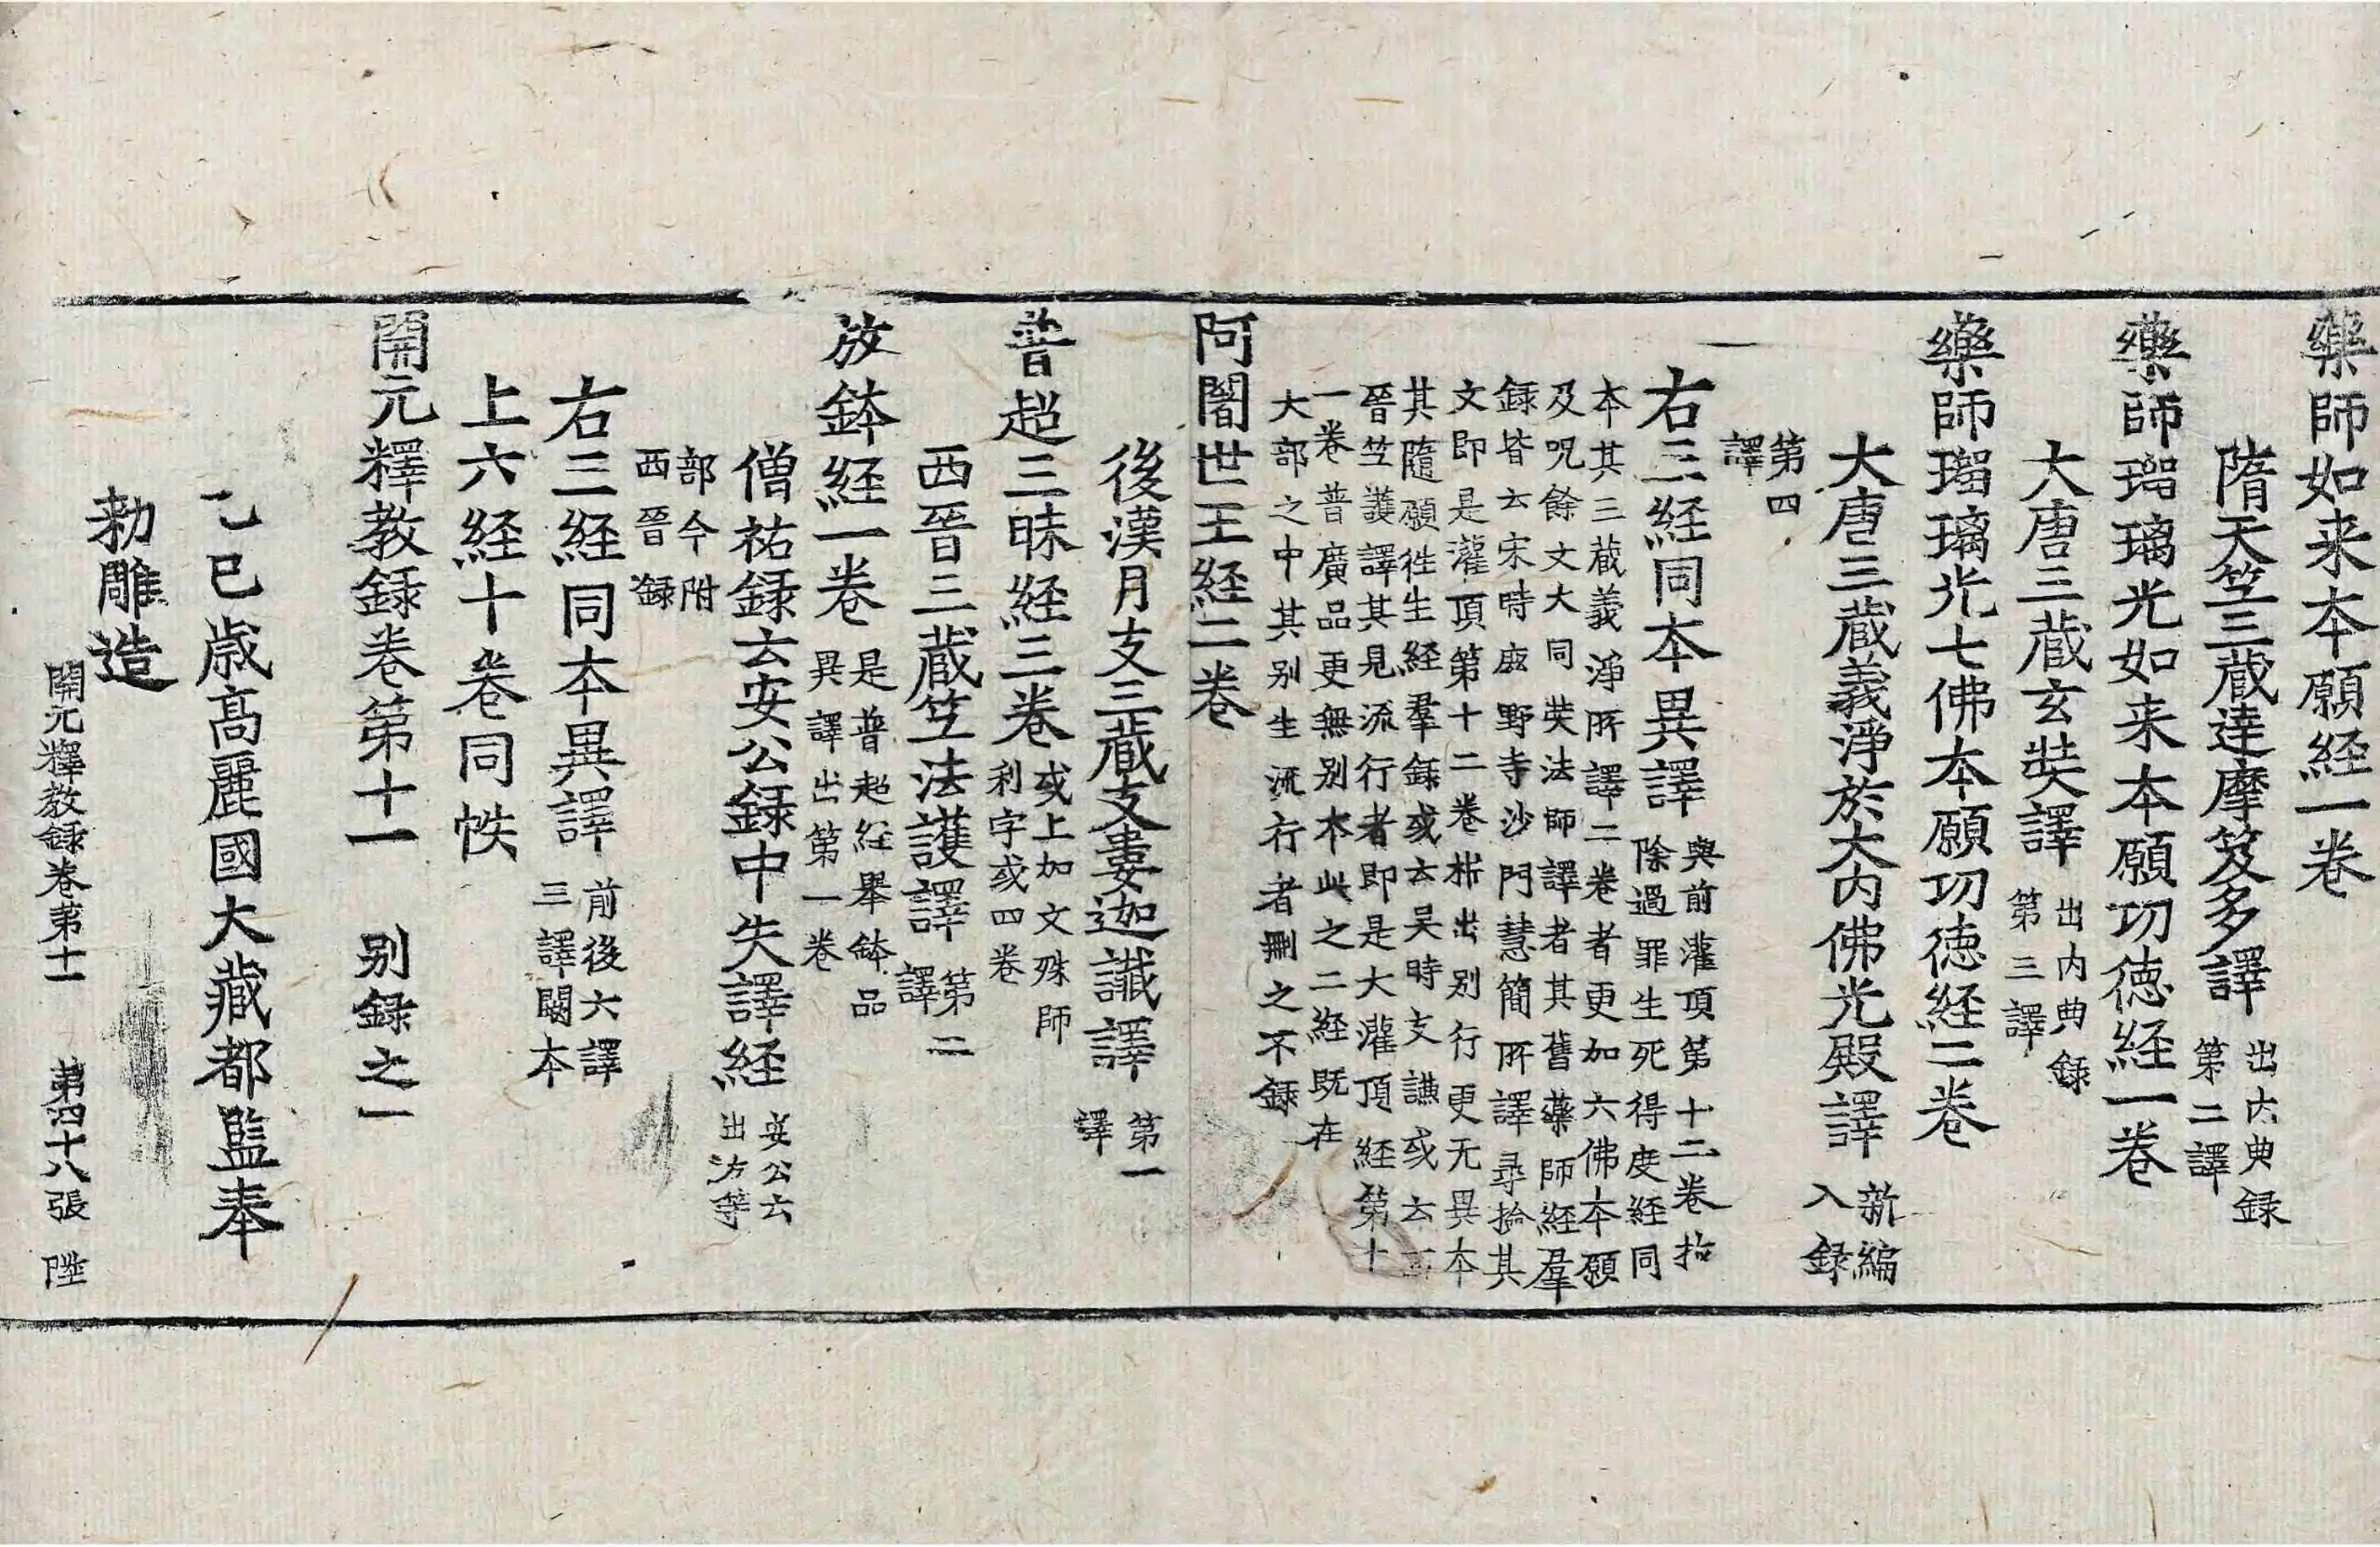 藥師如来本願経一卷
隋天笁三蔵達摩笈多譯 出內典録第二譯
藥師瑠璃光如来本願功徳経一卷
大唐三蔵玄奘譯 出内典録第三譯
藥師瑠璃光七佛本願功徳経二卷
大唐三蔵義淨於大內佛光殿譯 新編入録
第四譯
右三経同本異譯 與前灌頂第十二卷拔除過罪生死得度経同
本其三蔵義淨所譯二卷者更加六佛本願
及呪餘文大同奘法師譯者其舊藥師経羣
録皆云宋時鹿野寺沙門慧簡所譯尋撿其
文即是灌頂第十二卷析出别行更无異本
其隨願往生経羣録或云吴時支謙或云
晉笁護譯其見流行者即是大灌頂経第十
一卷普廣品更無别本此之二経既在
大部之中其别生流行者刪之不録
阿闍世王経二卷
後漢月支三蔵支婁迦讖譯 第一譯
普超三昧経三卷 或上加文殊師利字或四卷
西晉三蔵笁法護譯 第二譯
放鉢経一卷 是普超経舉鉢品異譯出第一卷
僧祐録云安公録中失譯経 安公云出方等
部今附西晉録
右三経同本異譯 前後六譯三譯闕本
上六経十卷同帙
開元釋教録卷第十一 别録之一
乙巳歳髙麗國大藏都監奉
勅雕造
開元釋教録卷第十一 第四十八張 陛